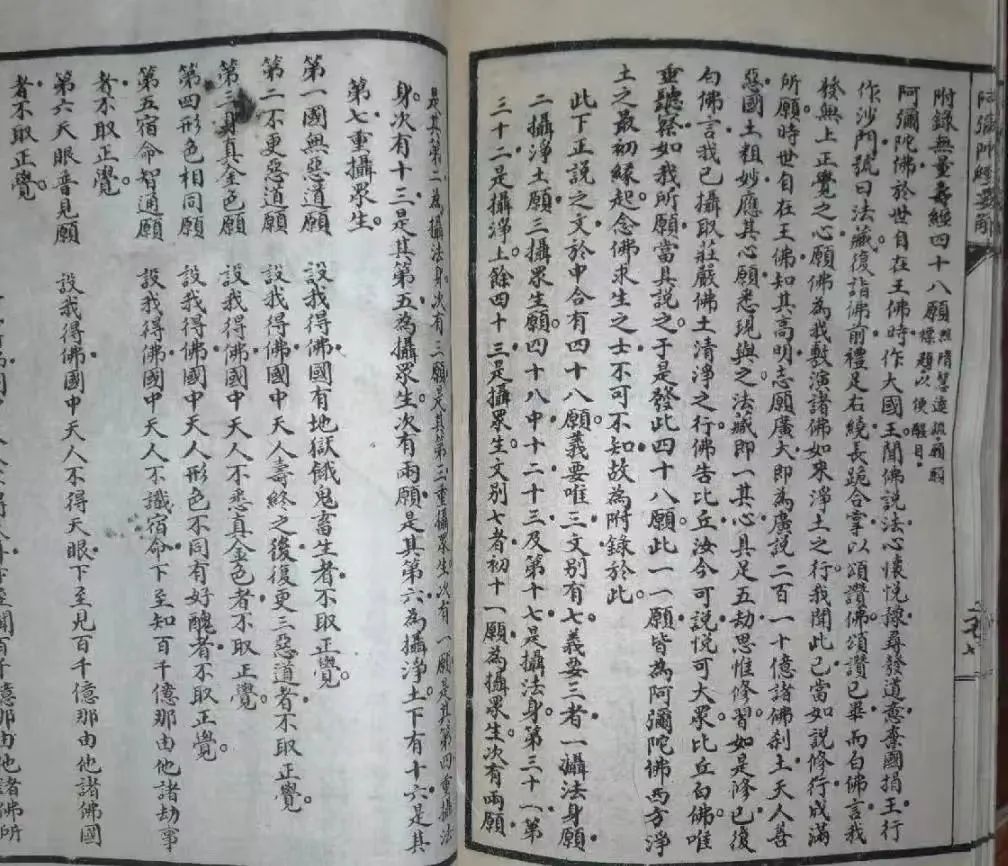 附錄無量壽經四十八願 照隋慧遠疏願願標題以便醒目
阿彌陀佛於世自在王佛時作大國王聞佛說法心懷悅豫尋發道意棄國捐王行
作沙門號曰法藏復詣佛前禮足右繞長跪合掌以頌讚佛頌讚已畢而白佛言我
發無上正覺之心願佛為我敷演諸佛如來淨土之行我聞此已當如說修行成滿
所願時世自在王佛知其高明志願廣大即為廣說二百一十億諸佛剎土天人善
惡國土粗妙應其心願悉現與之法藏即一其心具足五劫思惟修習如是修已復
白佛言我已攝取莊嚴佛土清淨之行佛告比丘汝今可說悅可大眾比丘白佛唯
垂聽察如我所願當具說之于是發此四十八願此一一願皆為阿彌陀佛西方淨
土之最初緣起念佛求生之士不可不知故為附錄於此
此下正說之文於中合有四十八願義要唯三文別有七義要三者一攝法身願
二攝淨土願三攝眾生願四十八中十二十三及第十七是攝法身第三十一第
三十二是攝淨土餘四十三是攝眾生文別七者初十一願為攝眾生次有兩願
是其第二為攝法身次有三願是其第三重攝眾生次有一願是其第四重攝法
身次有十三是其第五為攝眾生次有兩願是其第六為攝淨土下有十六是其
第七重攝眾生
第一國無惡道願 設我得佛國有地獄餓鬼畜生者不取正覺
第二不更惡道願 設我得佛國中天人壽終之後復更三惡道者不取正覺
第三身真金色願 設我得佛國中天人不悉真金色者不取正覺
第四形色相同願 設我得佛國中天人形色不同有好醜者不取正覺
第五宿命智通願 設我得佛國中天人不識宿命下至知百千億那由他諸劫事
者不取正覺
第六天眼普見願 設我得佛國中天人不得天眼下至見百千億那由他諸佛國
者不取正覺
阿彌陀經要解